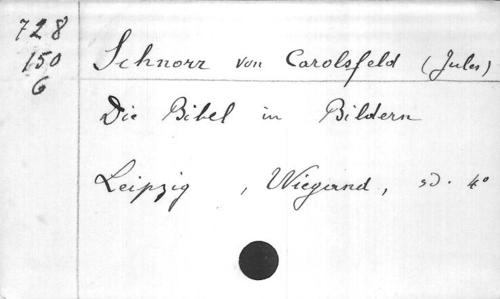 728
150
6
Schnorr von Carolsfeld (Jules)
Die Bibel in Bildern
Leipzig, Wiegand, sd. 4°